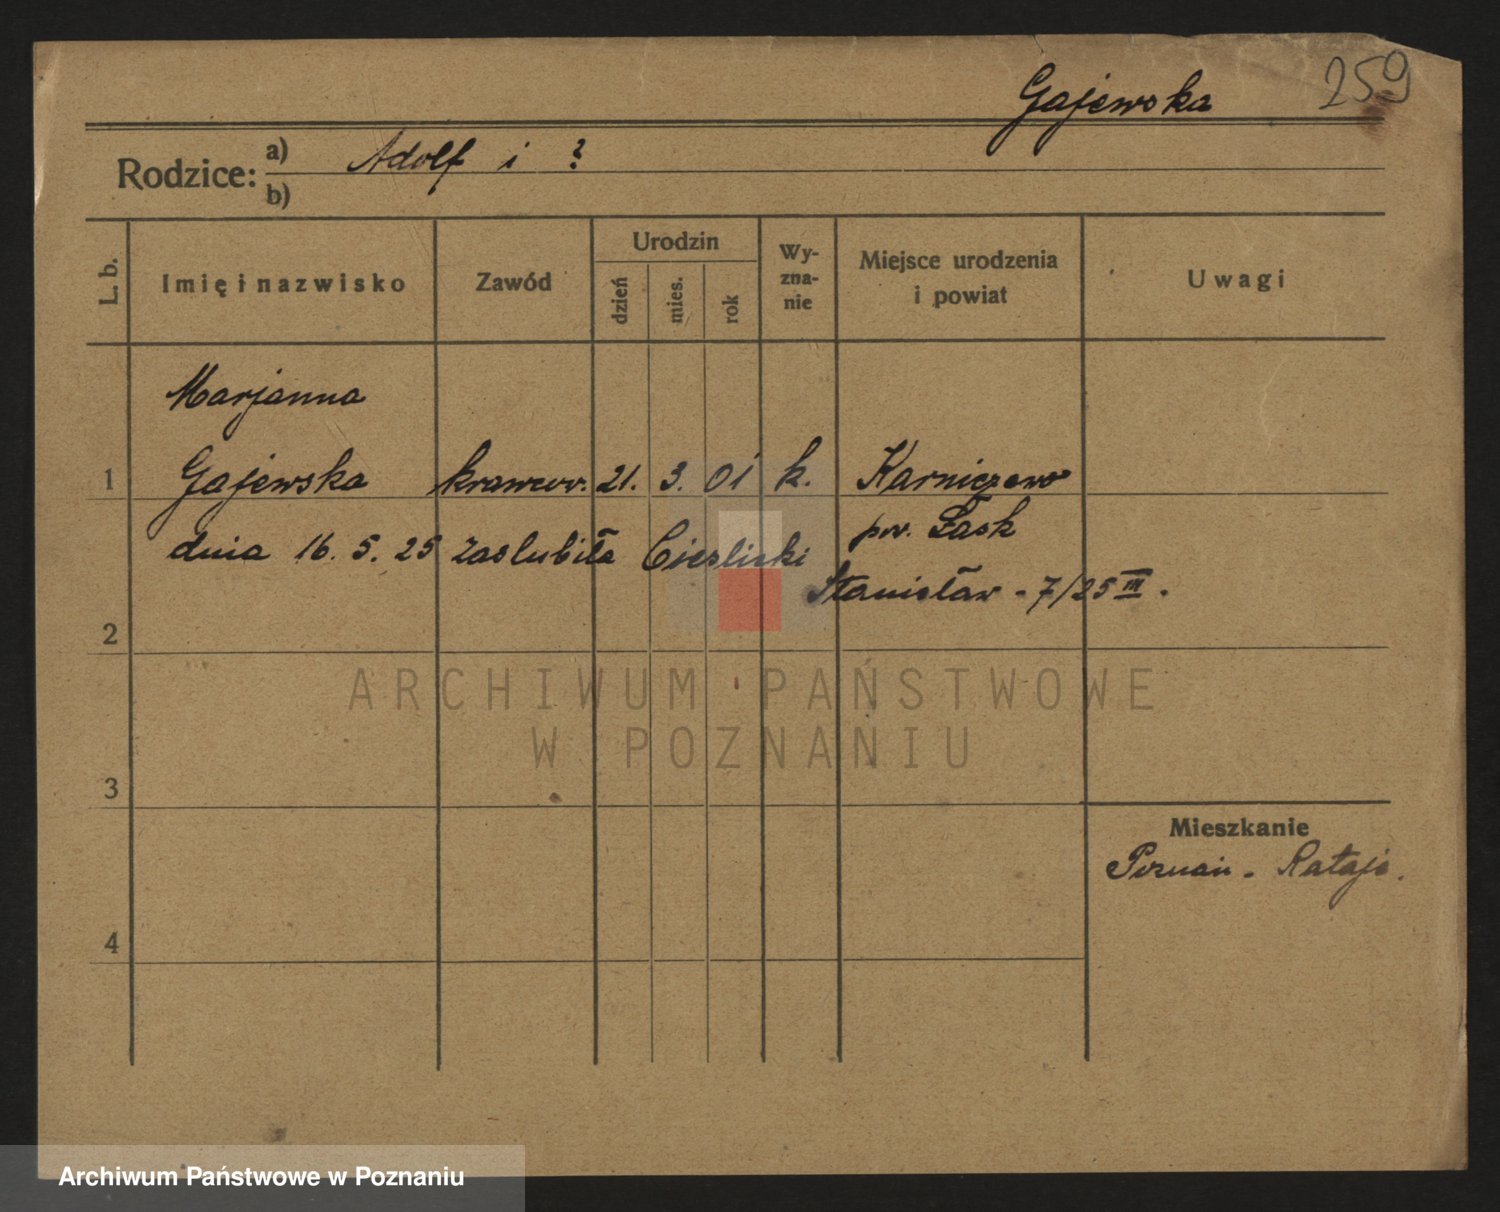 259
Gajewska
Rodzice: a) Adolf i ?
b)
L. b. Imię i nazwisko Zawód Urodzin dzień mies. rok Wy-zna-nie Miejsce urodzenia i powiat Uwagi
Marjanna
1 Gajewska krawcow. 21. 3. 01 k. Karniczewo
pow. Łask
dnia 16. 5. 25 zaslubiła Cieslicki
Stanisław - 7/25 III.
2
ARCHIWUM PAŃSTWOWE
W POZNANIU
3
Mieszkanie
Poznań - Rataje.
4
Archiwum Państwowe w Poznaniu